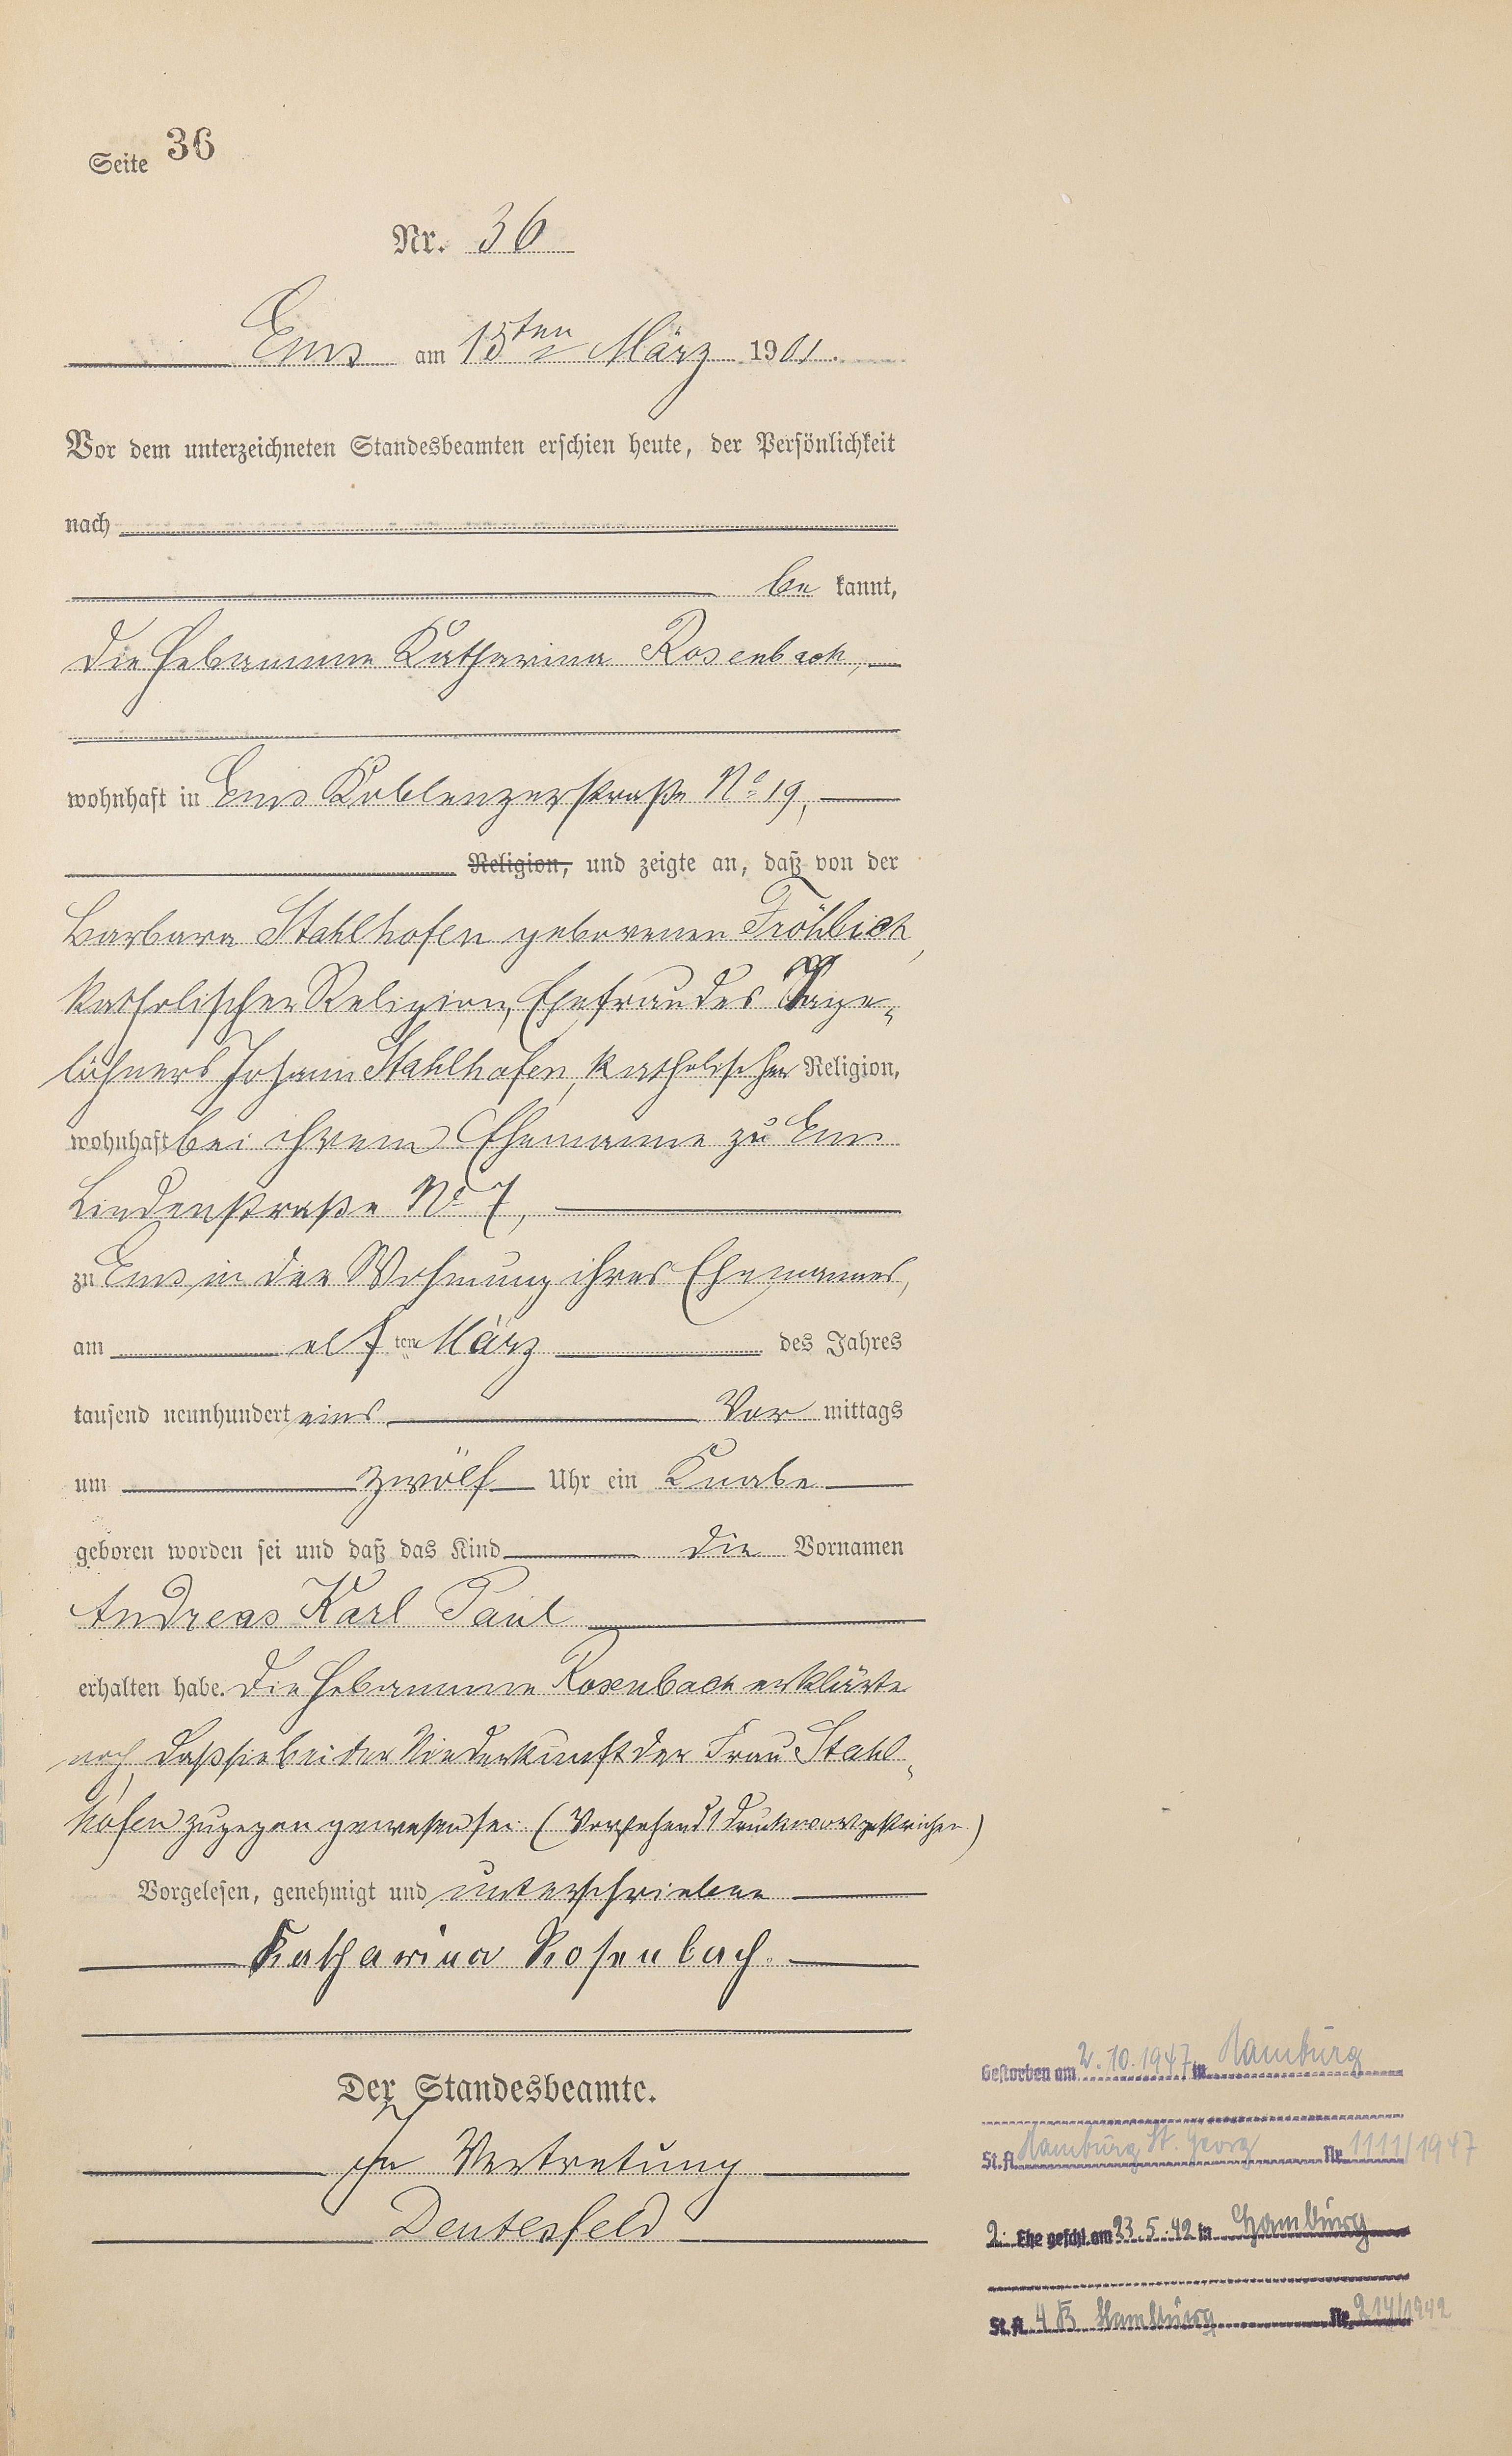 Seite 36
Nr. 36
Ems am 15ten März 1901.
Vor dem unterzeichneten Standesbeamten erschien heute, der Persönlichkeit
nach
be kannt,
die Hebamme Katharina Rosenbach,
wohnhaft in Ems Koblenzerstraße No 19,
Religion, und zeigte an, daß von der
Barbara Stahlhofen geborenen Fröhlich,
katholischer Religion, Ehefrau des Tage-
löhners Johann Stahlhofen, katholischer Religion,
wohnhaft bei ihrem Ehemanne zu Ems
Lindenstraße No 7,
zu Ems in der Wohnung ihres Ehemannes,
am elf ten März des Jahres
tausend neunhundert eins Vor mittags
um zwölf Uhr ein Knabe
geboren worden sei und daß das Kind die Vornamen
Andreas Karl Paul
erhalten habe. Die Hebamme Rosenbach erklärte
noch, daß sie bei der Niederkunft der Frau Stahl-
hofen zugegen gewesen sei. (Vorstehend 1 Druckwort gestrichen.)
Vorgelesen, genehmigt und unterschrieben
Katharina Rosenbach.
Der Standesbeamte.
In Vertretung
Deutesfeld
Gestorben am 2.10.1947 in Hamburg
St.A. Hamburg St. Georg Nr. 1111/1947
2. Ehe geschl. am 23.5.42 in Hamburg
St.A. 4 B Hamburg Nr. 214/1942